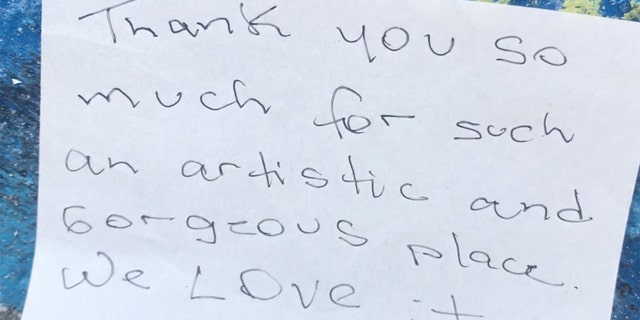 Thank you so
much for such
an artistic and
Gorgeous place.
We LOVE it